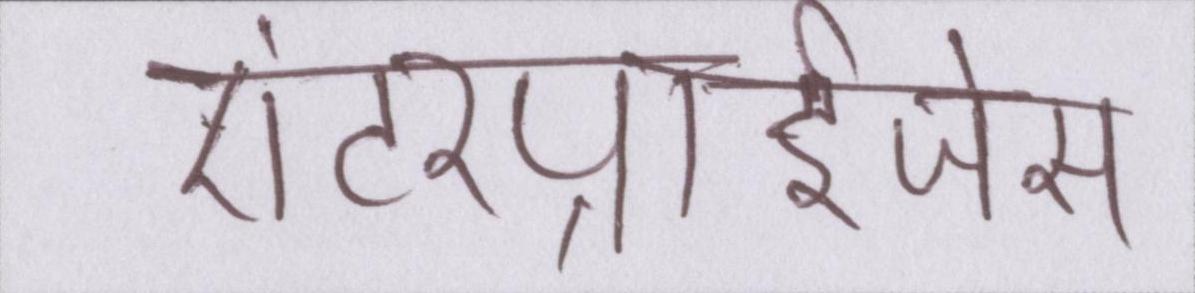 एंटरप्राईजेस